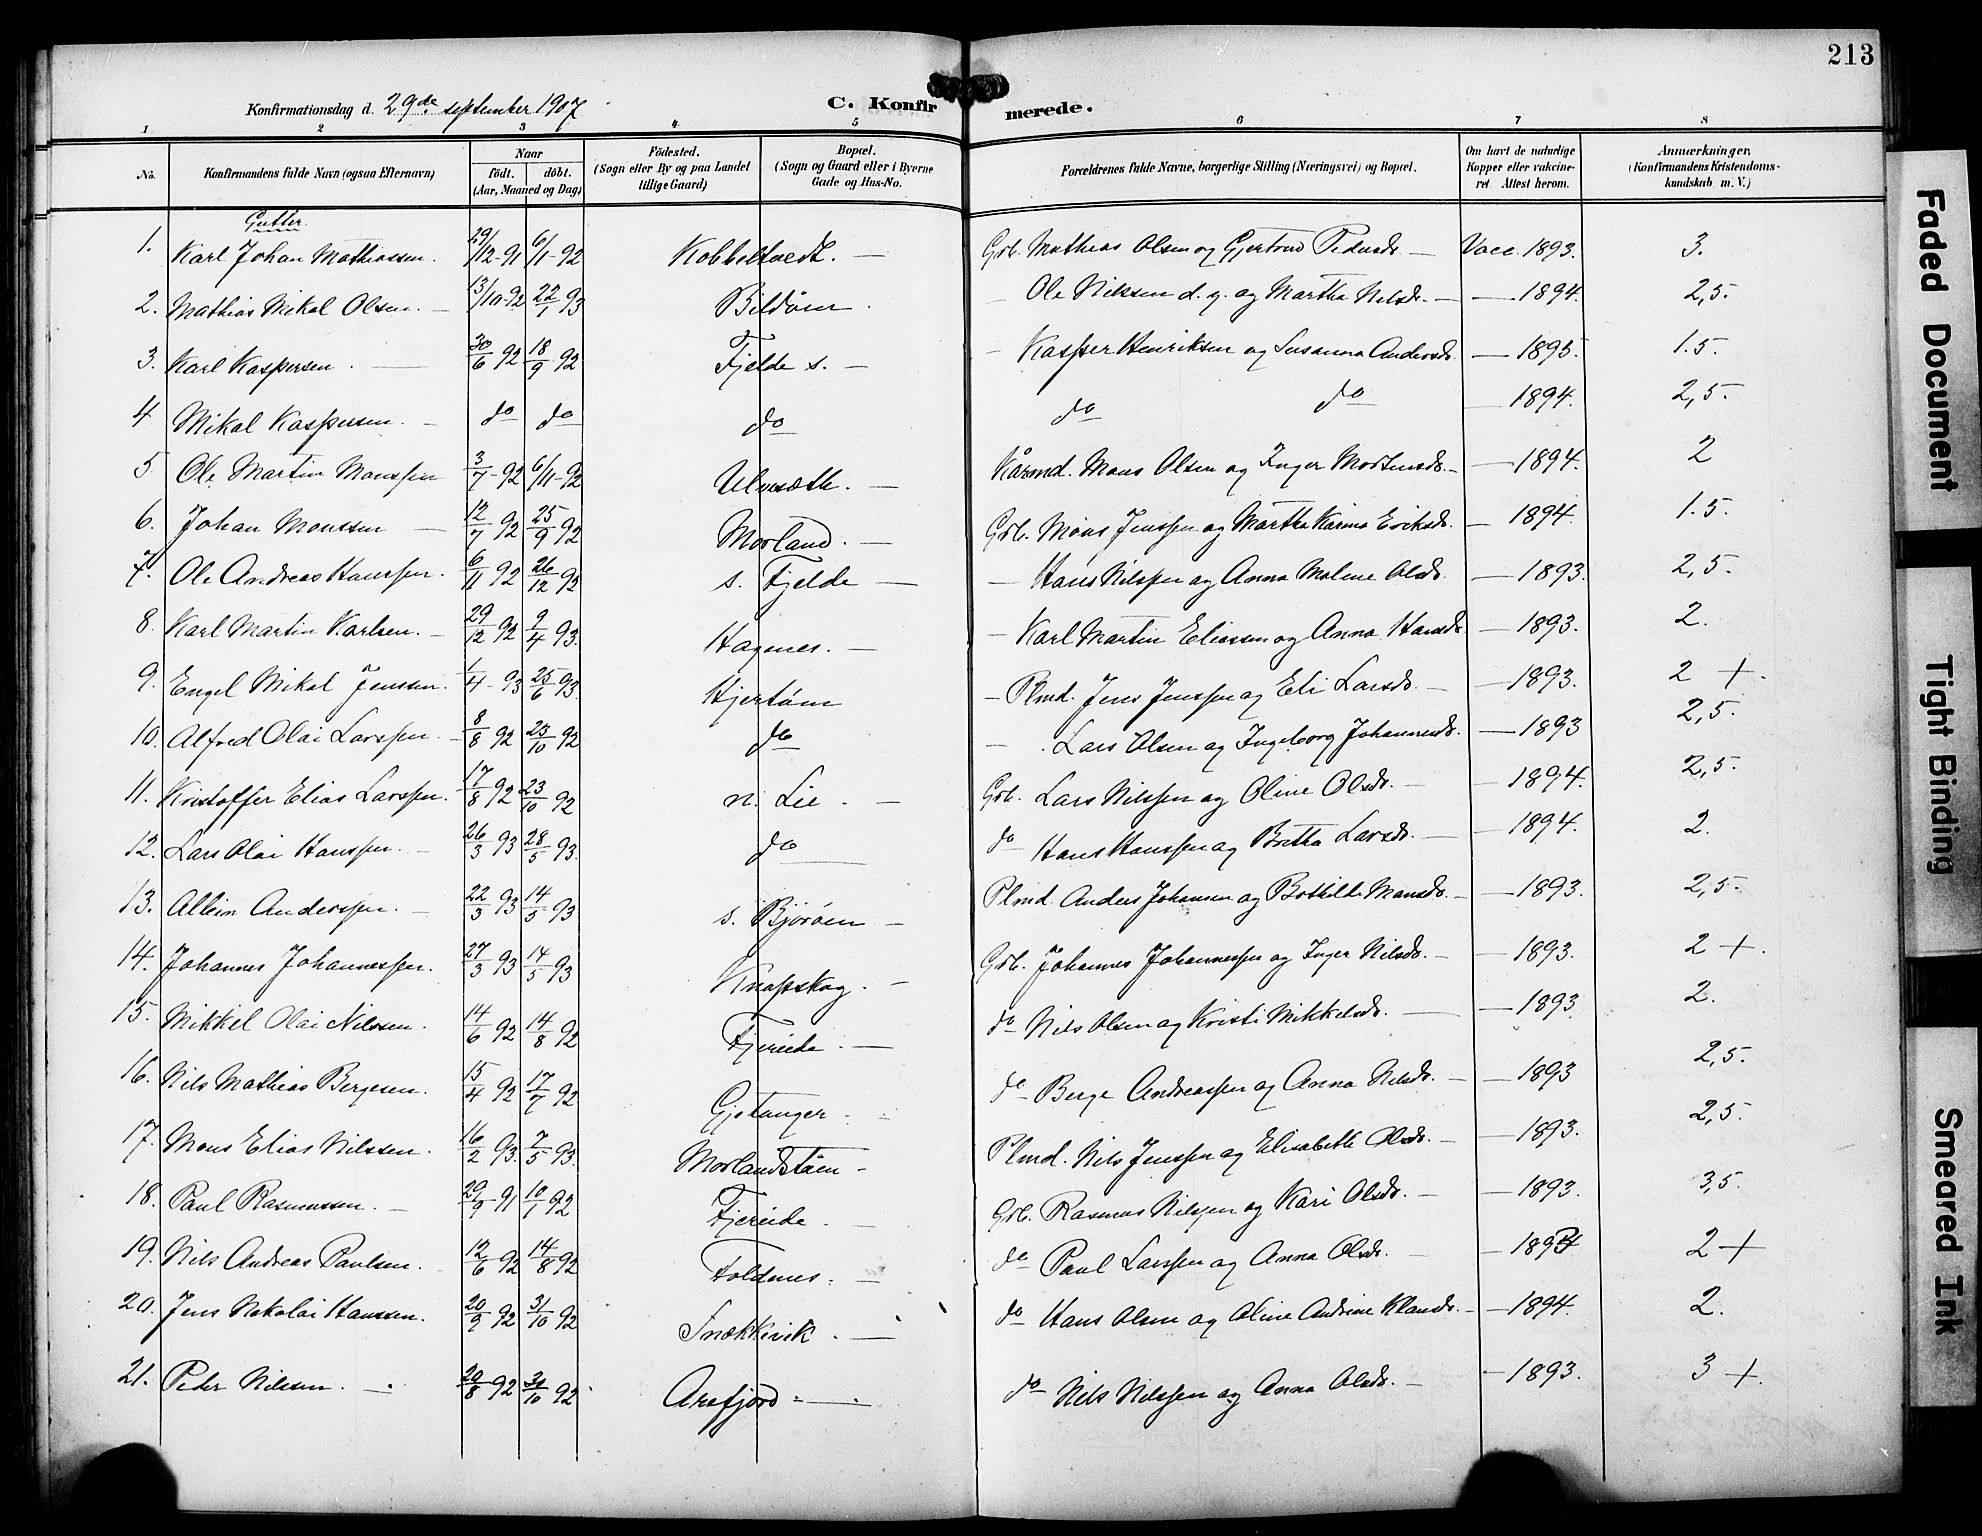 213
Konfirmationsdag d. 29de september 1907
C. Konfirmerede.
1 2 3 4 5 6 7 8
No. Konfirmandens fulde Navn (ogsaa Efternavn) Naar født. døbt. (Aar, Maaned og Dag) Fødested. (Sogn eller By og paa Landet tillige Gaard) Bopæl. (Sogn og Gaard eller i Byerne Gade og Hus-No. Forældrenes fulde Navne, borgerlige Stilling (Næringsvei) og Bopæl. Om havt de naturlige Kopper eller vakcineret. Attest herom. Anmærkninger. (Konfirmandens Kristendomskundskab m. V.)
Gutter.
1. Karl Johan Mathiassen. 29/12-91 6/1-92 Kobbeltvedt. — Grb. Mathias Olsen og Gjertrud Pedersdr. — Vacc. 1893. 3.
2. Mathias Mikal Olsen. — 13/10-92 22/1 93 Bildøen — Ole Nilssen d. y. og Martha Nilsdr. — — 1894. 2,5.
3. Karl Kaspersen. — 30/6 92 18/9 92 Fjelde s. — — Kasper Henriksen og Susanna Andersdr. — 1895. 1.5.
4 Mikal Kaspersen. — do do do do do — 1894. 2,5.
5 Ole Martin Monssen 3/7-92 6/11-92 Ulvesæth. — Kårmd. Mons Olsen og Inger Mortensdr. — — 1894. 2
6. Johan Monssen — 12/7 92 25/9 92 Morland. — Grb. Mons Jenssen og Martha Karina Eriksdr. — 1894. 1.5.
7. Ole Andreas Hanssen. 6/11 92 26/12 92 s. Fjelde — — Hans Nilssen og Anna Malene Olsdr. — 1893. 2,5.
8. Karl Martin Karlsen. — 29/12 92 9/4 93. Hagenes. — — Karl Martin Eliassen og Anna Hansdr. — 1893. 2.
9. Engel Mikal Jenssen. 1/4-93 25/6 93. Hjertøen — Plmd. Jens Jenssen og Eli Larsdr. — — 1893. 2 +.
10. Alfred Olai Larssen. — 8/8 92 23/10 92 do — Lars Olsen og Ingeborg Johannesdr. — 1893 2,5.
11. Kristoffer Elias Larssen. 17/8 92 23/10 92 n. Lie. — Grb. Lars Nilssen og Oline Olsdr. — — 1894. 2,5.
12. Lars Olai Hanssen. — 26/3 93 28/5 93. do — do Hans Hanssen og Britha Larsdr. — — 1894. 2.
13. Albin Anderssen. — 22/3 93 14/5 93 s. Bjørøen — Plmd. Anders Johansen og Bothilde Monsdr. — — 1893. 2,5.
14. Johannes Johannessen. 27/3 93 14/5 93 Knapskog. — Grb. Johannes Johannessen og Inger Nilsdr. — — 1893. 2 +.
15. Mikkel Olai Nilssen. 14/6 92 14/8 92 Fjereide. — do Nils Olsen og Kristi Mikkelsdr. — — 1893. 2.
16. Nils Mathias Bergesen. 15/4 92 17/7 92 Gjetanger. do Berge Andreassen og Anna Nilsdr. — — 1893 2,5.
17. Mons Elias Nilssen. 16/2 93. 7/5 93. Morlandstøen — Plmd. Nils Jenssen og Elisabeth Olsdr. — — 1893. 2,5.
18. Paul Rasmussen. — 29/9 91 10/1 92 Fjereide. — Grb. Rasmus Nilssen og Kari Olsdr. — — 1893. 3,5.
19. Nils Andreas Paulsen. 12/6 92 14/8 92 Foldnes. — do Paul Larssen og Anna Olsdr. — — 1894 2 +
20. Jens Nikolai Hanssen. 20/9 92 31/10 92 Snekkevik. — do Hans Olsen og Oline Andrine Klausdr. — — 1894. 2.
21. Peder Nilssen. — 20/8 92 31/10 92 Arefjord — do Nils Nilssen og Anna Olsdr. — — 1893. 3 +.
Faded Document
Tight Binding
Smeared Ink